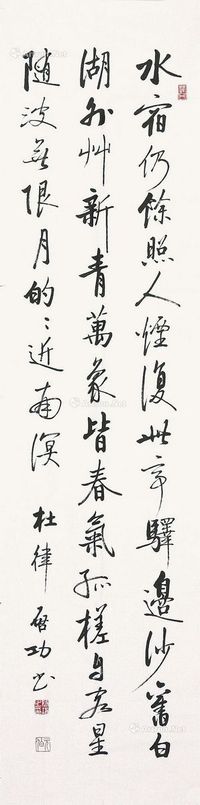 水宿仍餘照人煙復此亭驛邊沙舊白
湖外艸新青萬象皆春氣孤槎自客星
随波無限月的〻近南溟 杜律 啟功书